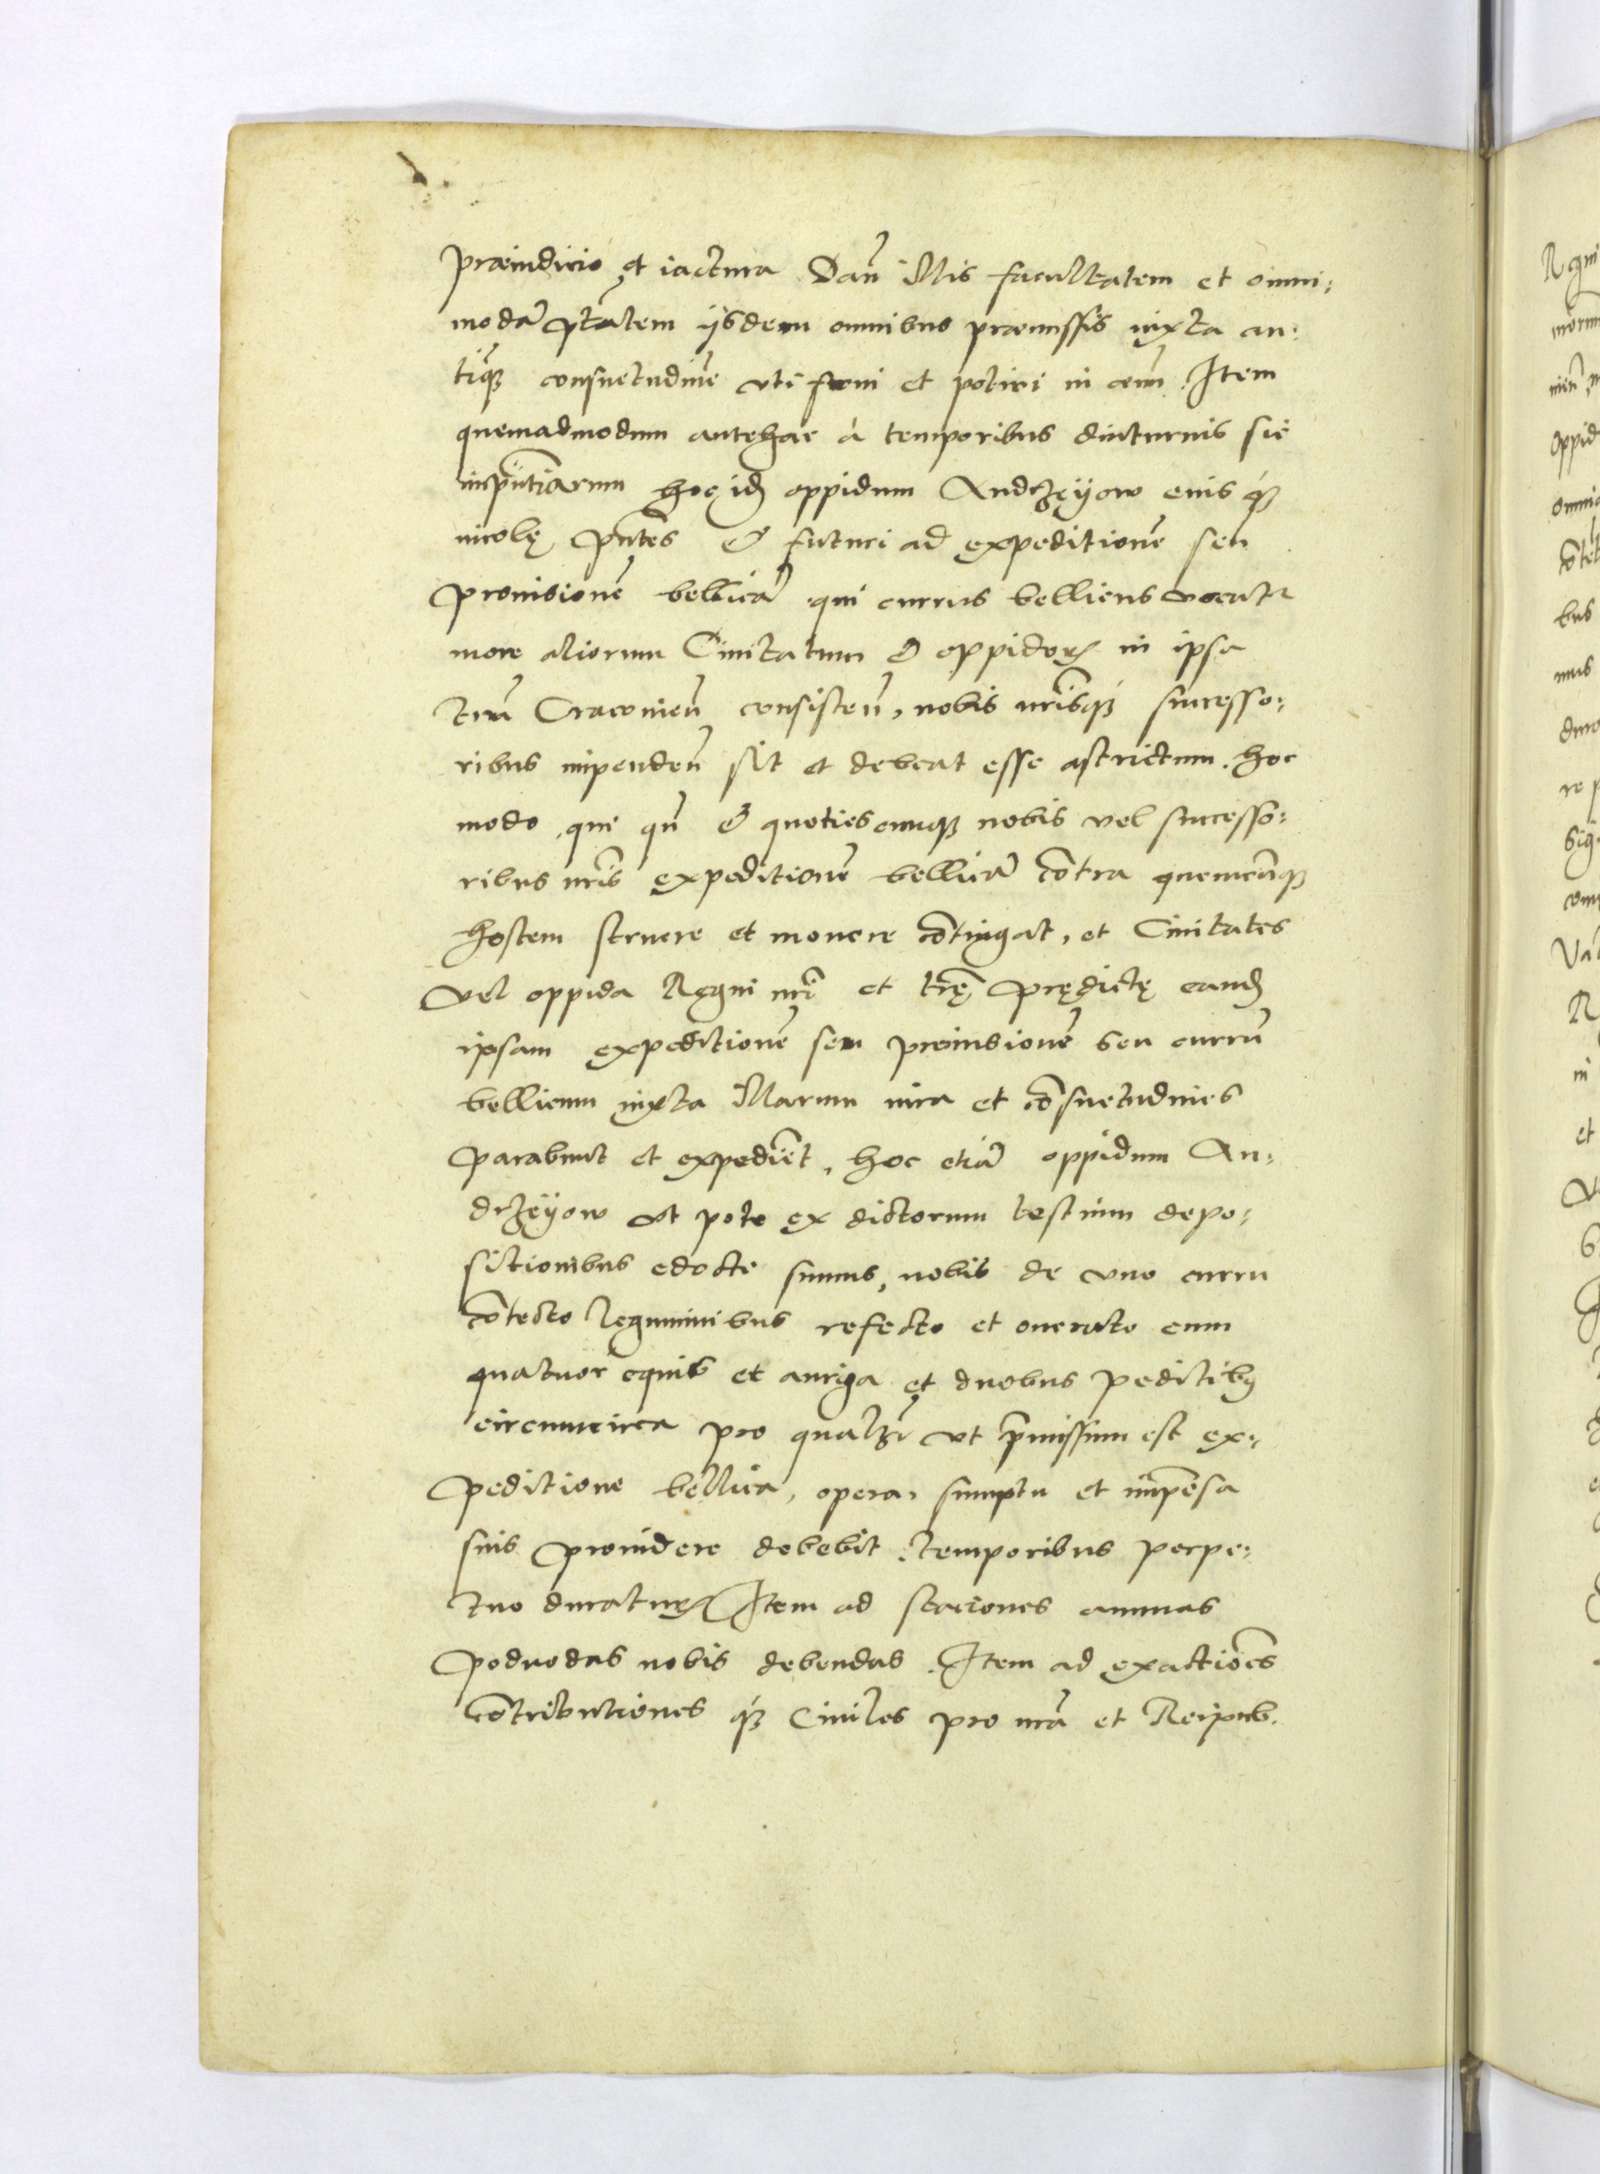 praeiudicio et iactura Dañ illis facultatem et omni:
modā ptātem ijsdem omnibus praemissis iuxta an:
tiq̃ consuetudinē uti frui et potiri in aeuū. Item
quemadmodum antehac à temporibus diuturnis sic
inpñtiarum hoc idẽ oppidum Andrzeÿow eius q́ꝫ
incolę pñtes & futuri ad expeditionē seu
prouisionē bellicā qui currus bellicus uocatr
more aliorum Ciuitatum & oppidoꝝ in ipsa
trrã Cracovieñ consisteñ, nobis nrisq́ꝫ successo:
ribus impendeñ sit et debeat esse astrictum. hoc
modo, que qñ & quotiescunqꝫ nobis vel successo:
ribus nris expeditionē bellicā cōtra quemcūqꝫ
hostem struere et mouere cōtingat, et Ciuitates
vel oppida Regni nri et trrę prędictę eandẽ
ipsam expeditionē seu prouisionē seu currū
bellicum iuxta illarum iura et cōsuetudines
parabunt et expediēt, hoc etiā oppidum An:
drzeÿow ut pote ex dictorum testium depo:
sitionibus edocti sumus, nobis de uno curru
cōtecto leguminibus refecto et onerato cum
quatuor equis et auriga et duobus peditibꝫ
circumcirca pro qualꝫt ut p̄missum est ex:
peditione bellica, opera, sumptu et impēsa
suis prouidere debebit temporibus perpe:
tuo duraturꝭ Item ad staciones annuas
poduodas nobis debendas. Item ad exactiōes
cōtributiones q́ꝫ Ciuiles pro nrā et Reipub.